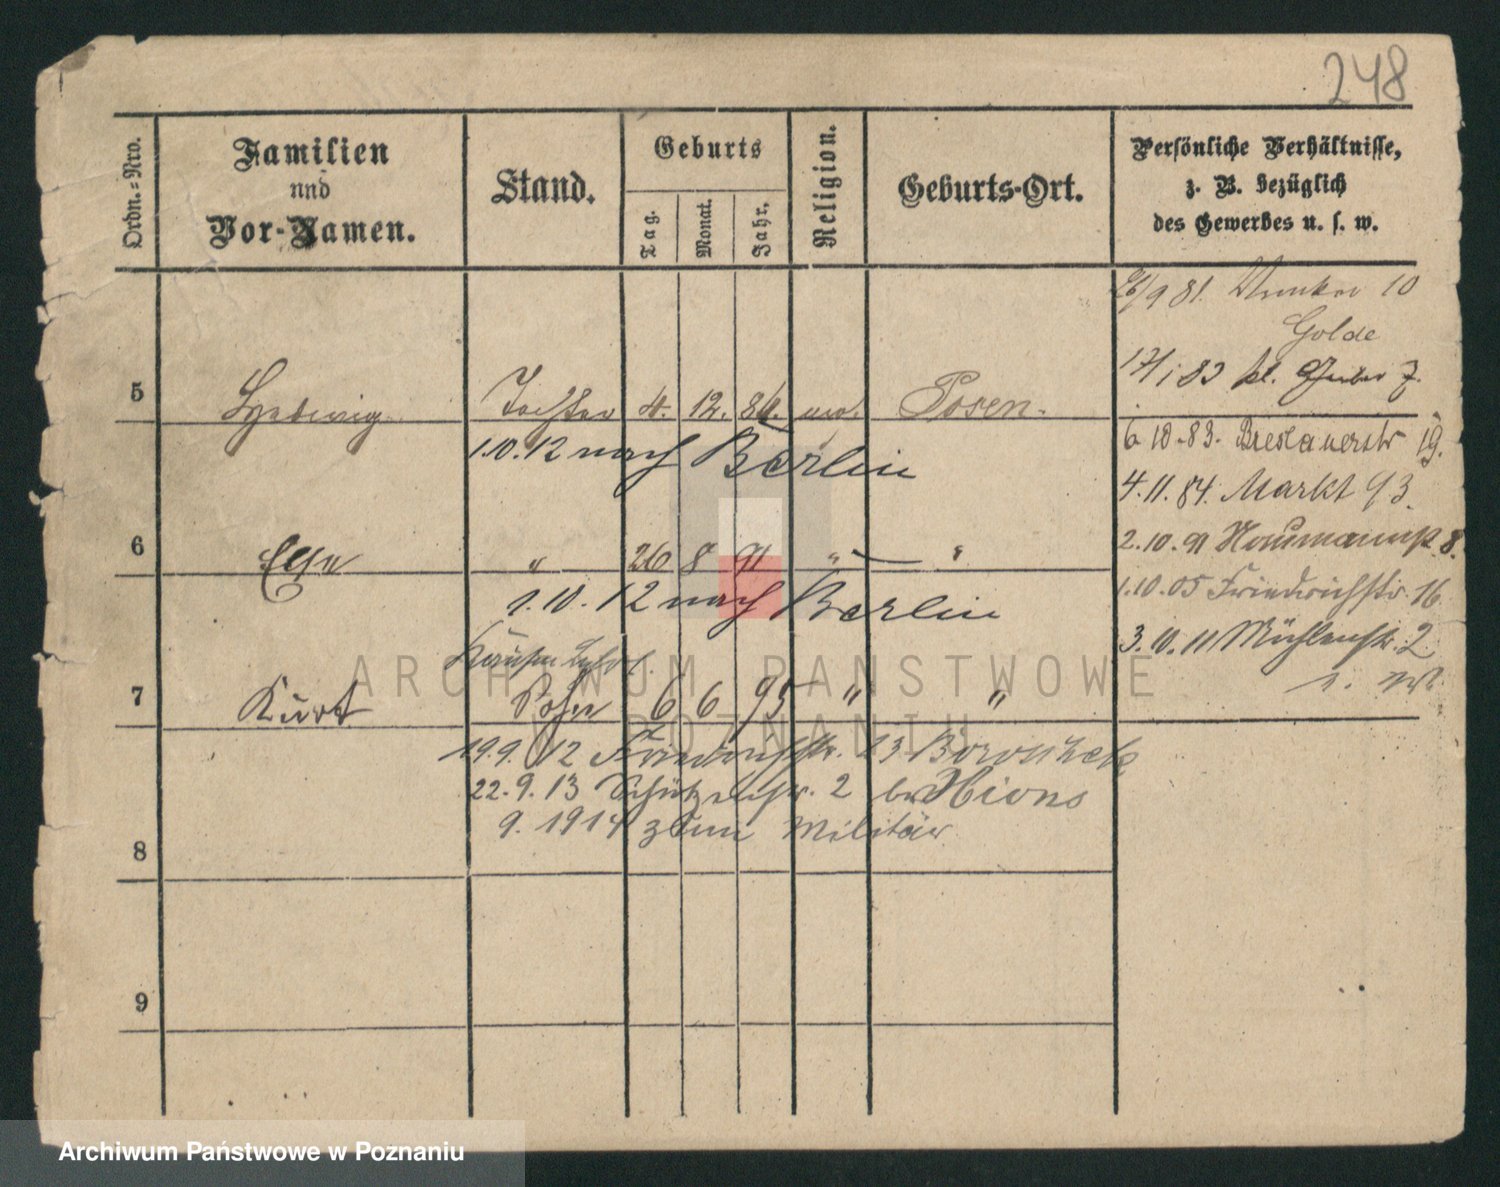 248
Ordn.-Nro.
Familien
und
Vor-Namen.
Stand.
Geburts
Tag.
Monat.
Jahr.
Religion.
Geburts-Ort.
Persönliche Verhältnisse,
z. B. bezüglich
des Gewerbes u. s. w.
26/9 81. 10
Golde
17/1 83 kl. 7.
5 Hedwig Tochter 4. 12. 84. mos. Posen.
1.10.12 nach Berlin
6.10.83. Breslauerstr 19.
4.11.84. Markt 93.
6 Else " 26 8 91 " "
2.10.91 Naumannstr 8.
1.10.12 nach Berlin
1.10.05 Friedrichstr 16
3.10.11 Mühlenstr. 2.
7 Kurt Sohn 6 6 95 " "
19.9.12 Friedrichstr. 23
22.9.13 Schützenstr. 2 bei
9. 1914 zum Militär
8
9
ARCHIWUM PAŃSTWOWE
W POZNANIU
Archiwum Państwowe w Poznaniu